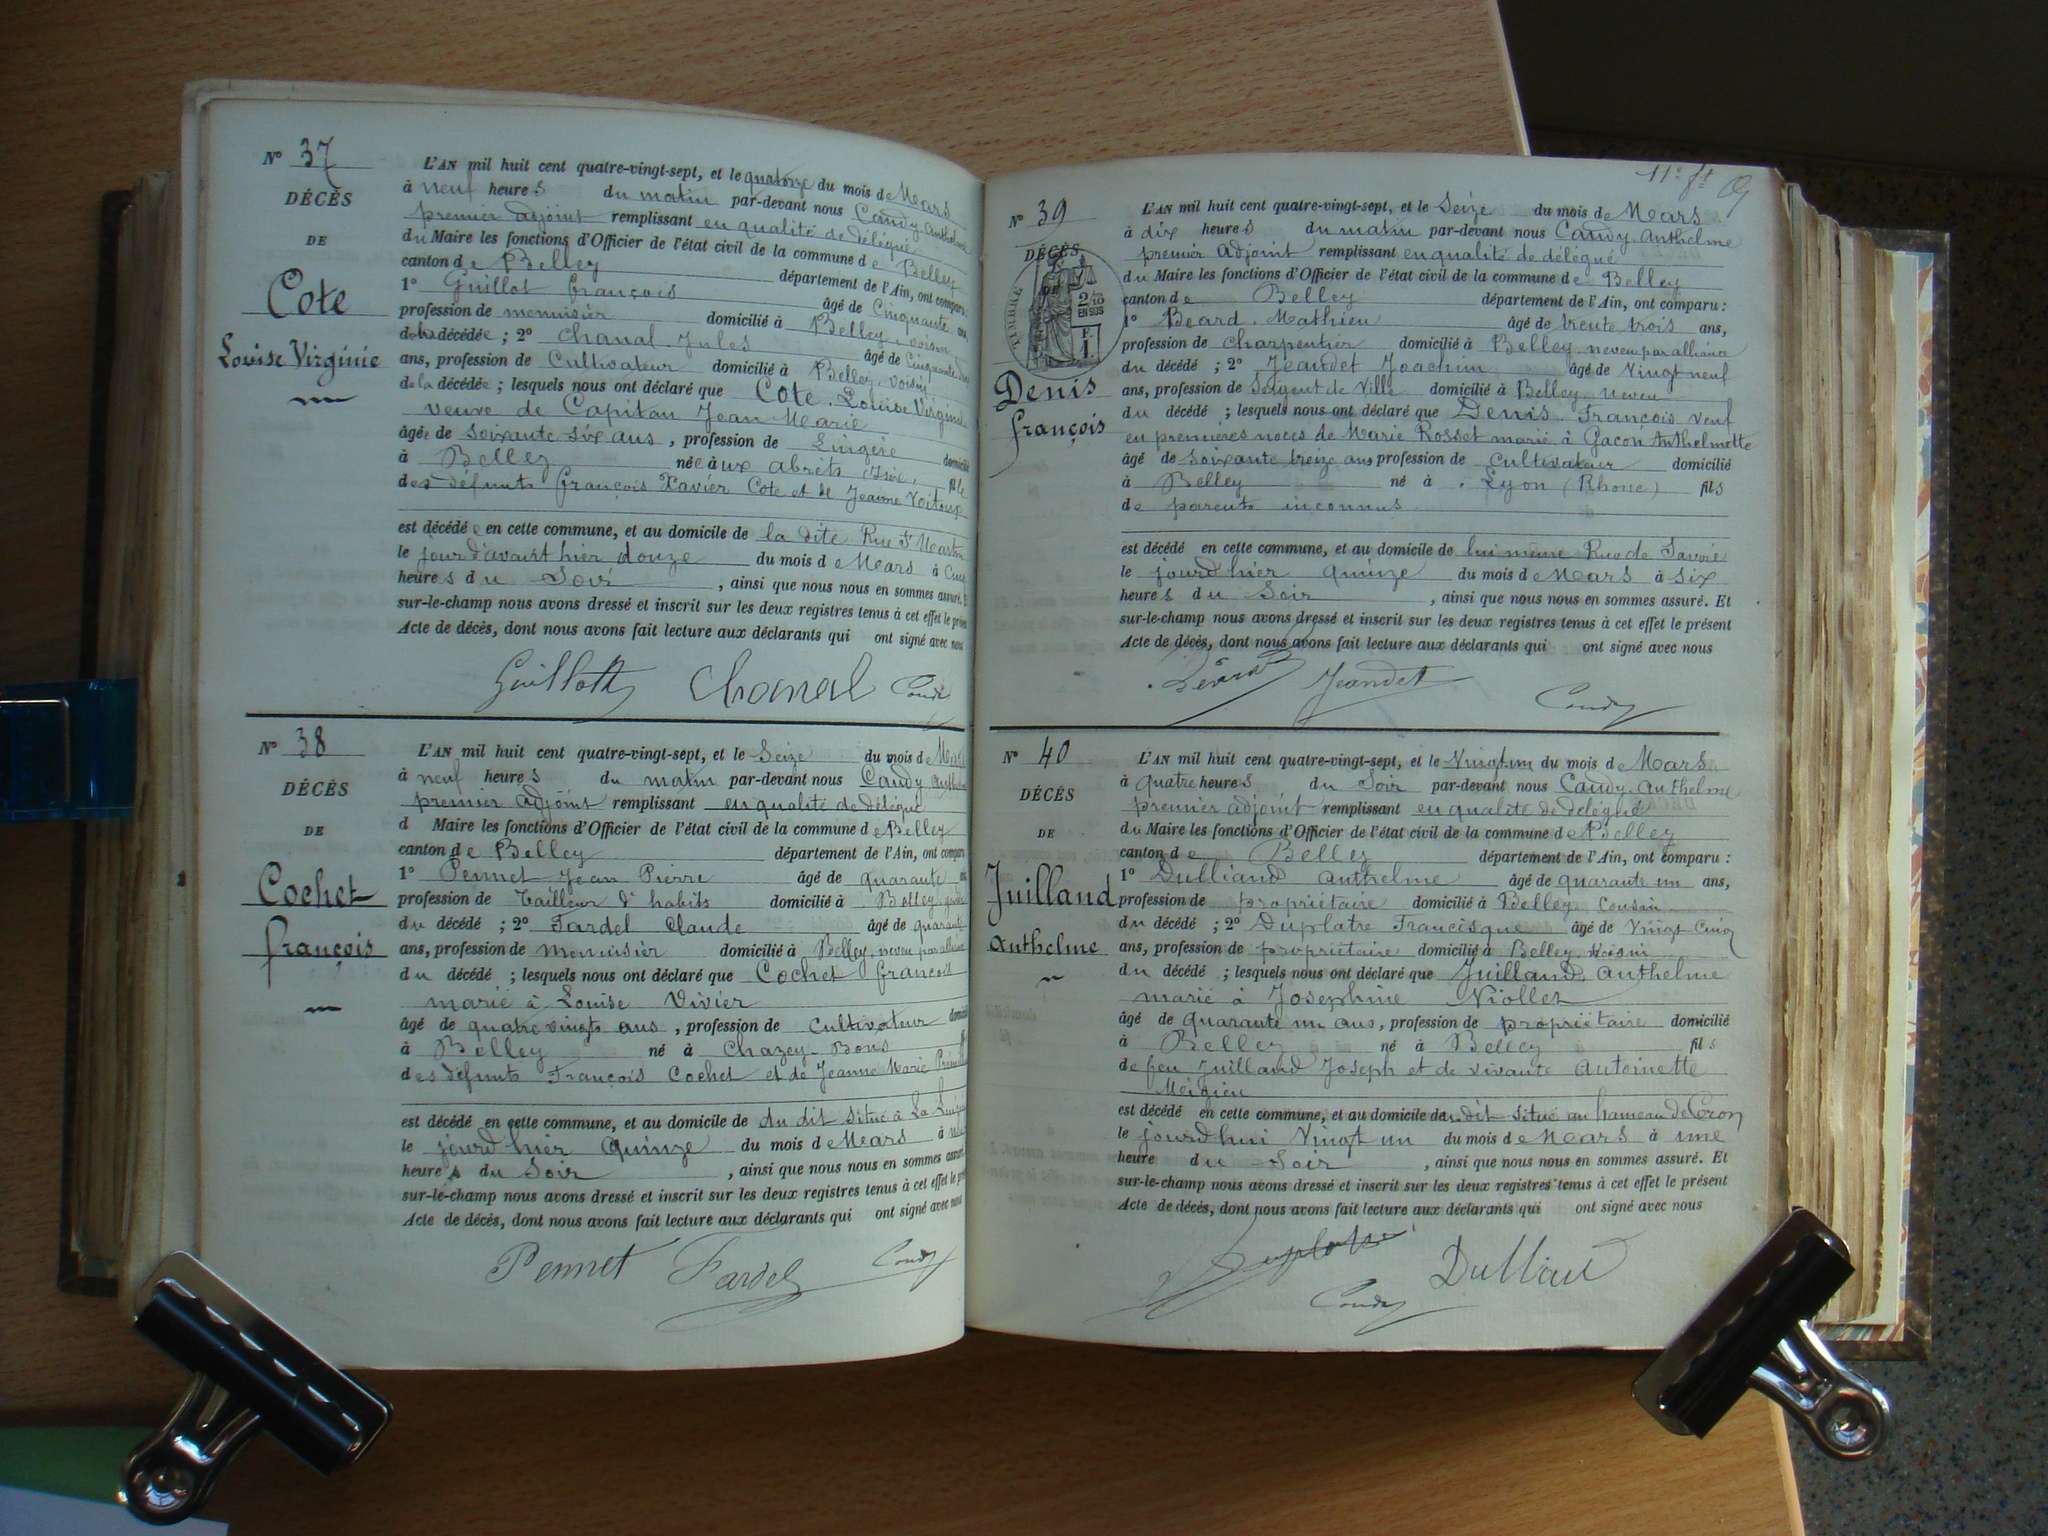 N° 37
DÉCÈS
DE
Cote
Louise Virginie
L'AN mil huit cent quatre-vingt-sept, et le quatorze du mois de Mars
à neuf heures du matin par-devant nous Caudy Anthelme
premier adjoint remplissant en qualité de délégué
du Maire les fonctions d'Officier de l'état civil de la commune de Belley
canton de Belley département de l'Ain, ont comparu:
1° Guillot françois âgé de Cinquante ans,
profession de menuisier domicilié à Belley, voisin
de la décédée ; 2° Chanal Jules âgé de Cinquante
ans, profession de Cultivateur domicilié à Belley, voisin
de la décédée ; lesquels nous ont déclaré que Cote Louise Virginie
veuve de Capitan Jean Marie
âgée de soixante six ans, profession de Lingère domicilié
à Belley née aux abrets Isère, fille
des défunts françois Xavier Cote et de Jeanne Voitoux
est décédée en cette commune, et au domicile de la dite Rue St Martin
le jour d'avant hier douze du mois de Mars à Cinq
heures du Soir, ainsi que nous nous en sommes assuré. Et
sur-le-champ nous avons dressé et inscrit sur les deux registres tenus à cet effet le présent
Acte de décès, dont nous avons fait lecture aux déclarants qui ont signé avec nous
Guillot Chanal Caudy
N° 38
DÉCÈS
DE
Cochet
françois
L'AN mil huit cent quatre-vingt-sept, et le Seize du mois de Mars
à neuf heures du matin par-devant nous Caudy Anthelme
premier adjoint remplissant en qualité de délégué
d Maire les fonctions d'Officier de l'état civil de la commune de Belley
canton de Belley département de l'Ain, ont comparu
1° Pennet Jean Pierre âgé de quarante ans
profession de Tailleur d'habits domicilié à Belley
du décédé ; 2° Fardel Claude âgé de quarante
ans, profession de menuisier domicilié à Belley, neveu par alliance
du décédé ; lesquels nous ont déclaré que Cochet françois
marié à Louise Vivier
âgé de quatre vingts ans, profession de Cultivateur domicilié
à Belley né à Chazey-Bons
des défunts François Cochet et de Jeanne Marie
est décédé en cette commune, et au domicile de du dit situé à La
le jour d'hier quinze du mois de Mars à
heures du Soir, ainsi que nous nous en sommes assuré.
sur-le-champ nous avons dressé et inscrit sur les deux registres tenus à cet effet le présent
Acte de décès, dont nous avons fait lecture aux déclarants qui ont signé avec nous
Pennet Fardel Caudy
11e ft
N° 39
DÉCÈS
DE
TIMBRE
2/10
EN SUS
F.
1.
Denis
françois
L'AN mil huit cent quatre-vingt-sept, et le Seize du mois de Mars
à dix heures du matin par-devant nous Caudy Anthelme
premier adjoint remplissant en qualité de délégué
du Maire les fonctions d'Officier de l'état civil de la commune de Belley
canton de Belley département de l'Ain, ont comparu:
1° Beard Mathieu âgé de trente trois ans,
profession de charpentier domicilié à Belley neveu par alliance
du décédé ; 2° Jeandet Joachim âgé de Vingt neuf
ans, profession de Sergent de Ville domicilié à Belley neveu
du décédé ; lesquels nous ont déclaré que Denis François Veuf
en premières noces de Marie Rosset marié à Gacon Anthelmette
âgé de soixante treize ans profession de Cultivateur domicilié
à Belley né à Lyon (Rhone) fils
de parents inconnus
est décédé en cette commune, et au domicile de lui même Rue de Savoie
le jour d'hier quinze du mois de Mars à six
heures du Soir, ainsi que nous nous en sommes assuré. Et
sur-le-champ nous avons dressé et inscrit sur les deux registres tenus à cet effet le présent
Acte de décès, dont nous avons fait lecture aux déclarants qui ont signé avec nous
Béard Jeandet
Caudy
N° 40
DÉCÈS
DE
Juilland
Anthelme
L'AN mil huit cent quatre-vingt-sept, et le Vingt un du mois de Mars
à quatre heures du Soir par-devant nous Caudy Anthelme
premier adjoint remplissant en qualité de délégué
du Maire les fonctions d'Officier de l'état civil de la commune de Belley
canton de Belley département de l'Ain, ont comparu :
1° Dulliand Anthelme âgé de quarante un ans,
profession de propriétaire domicilié à Belley Cousin
du décédé ; 2° Duplatre Francisque âgé de Vingt Cinq
ans, profession de propriétaire domicilié à Belley Voisin
du décédé ; lesquels nous ont déclaré que Juilland Anthelme
marié à Josephine Viollet
âgé de quarante un ans, profession de propriétaire domicilié
à Belley né à Belley fils
de feu Juilland Joseph et de vivante Antoinette
est décédé en cette commune, et au domicile du dit situé au hameau de Coron
le jour d'hui Vingt un du mois de Mars à une
heure du Soir, ainsi que nous nous en sommes assuré. Et
sur-le-champ nous avons dressé et inscrit sur les deux registres tenus à cet effet le présent
Acte de décès, dont nous avons fait lecture aux déclarants qui ont signé avec nous
Duplatre Dulliand
Caudy